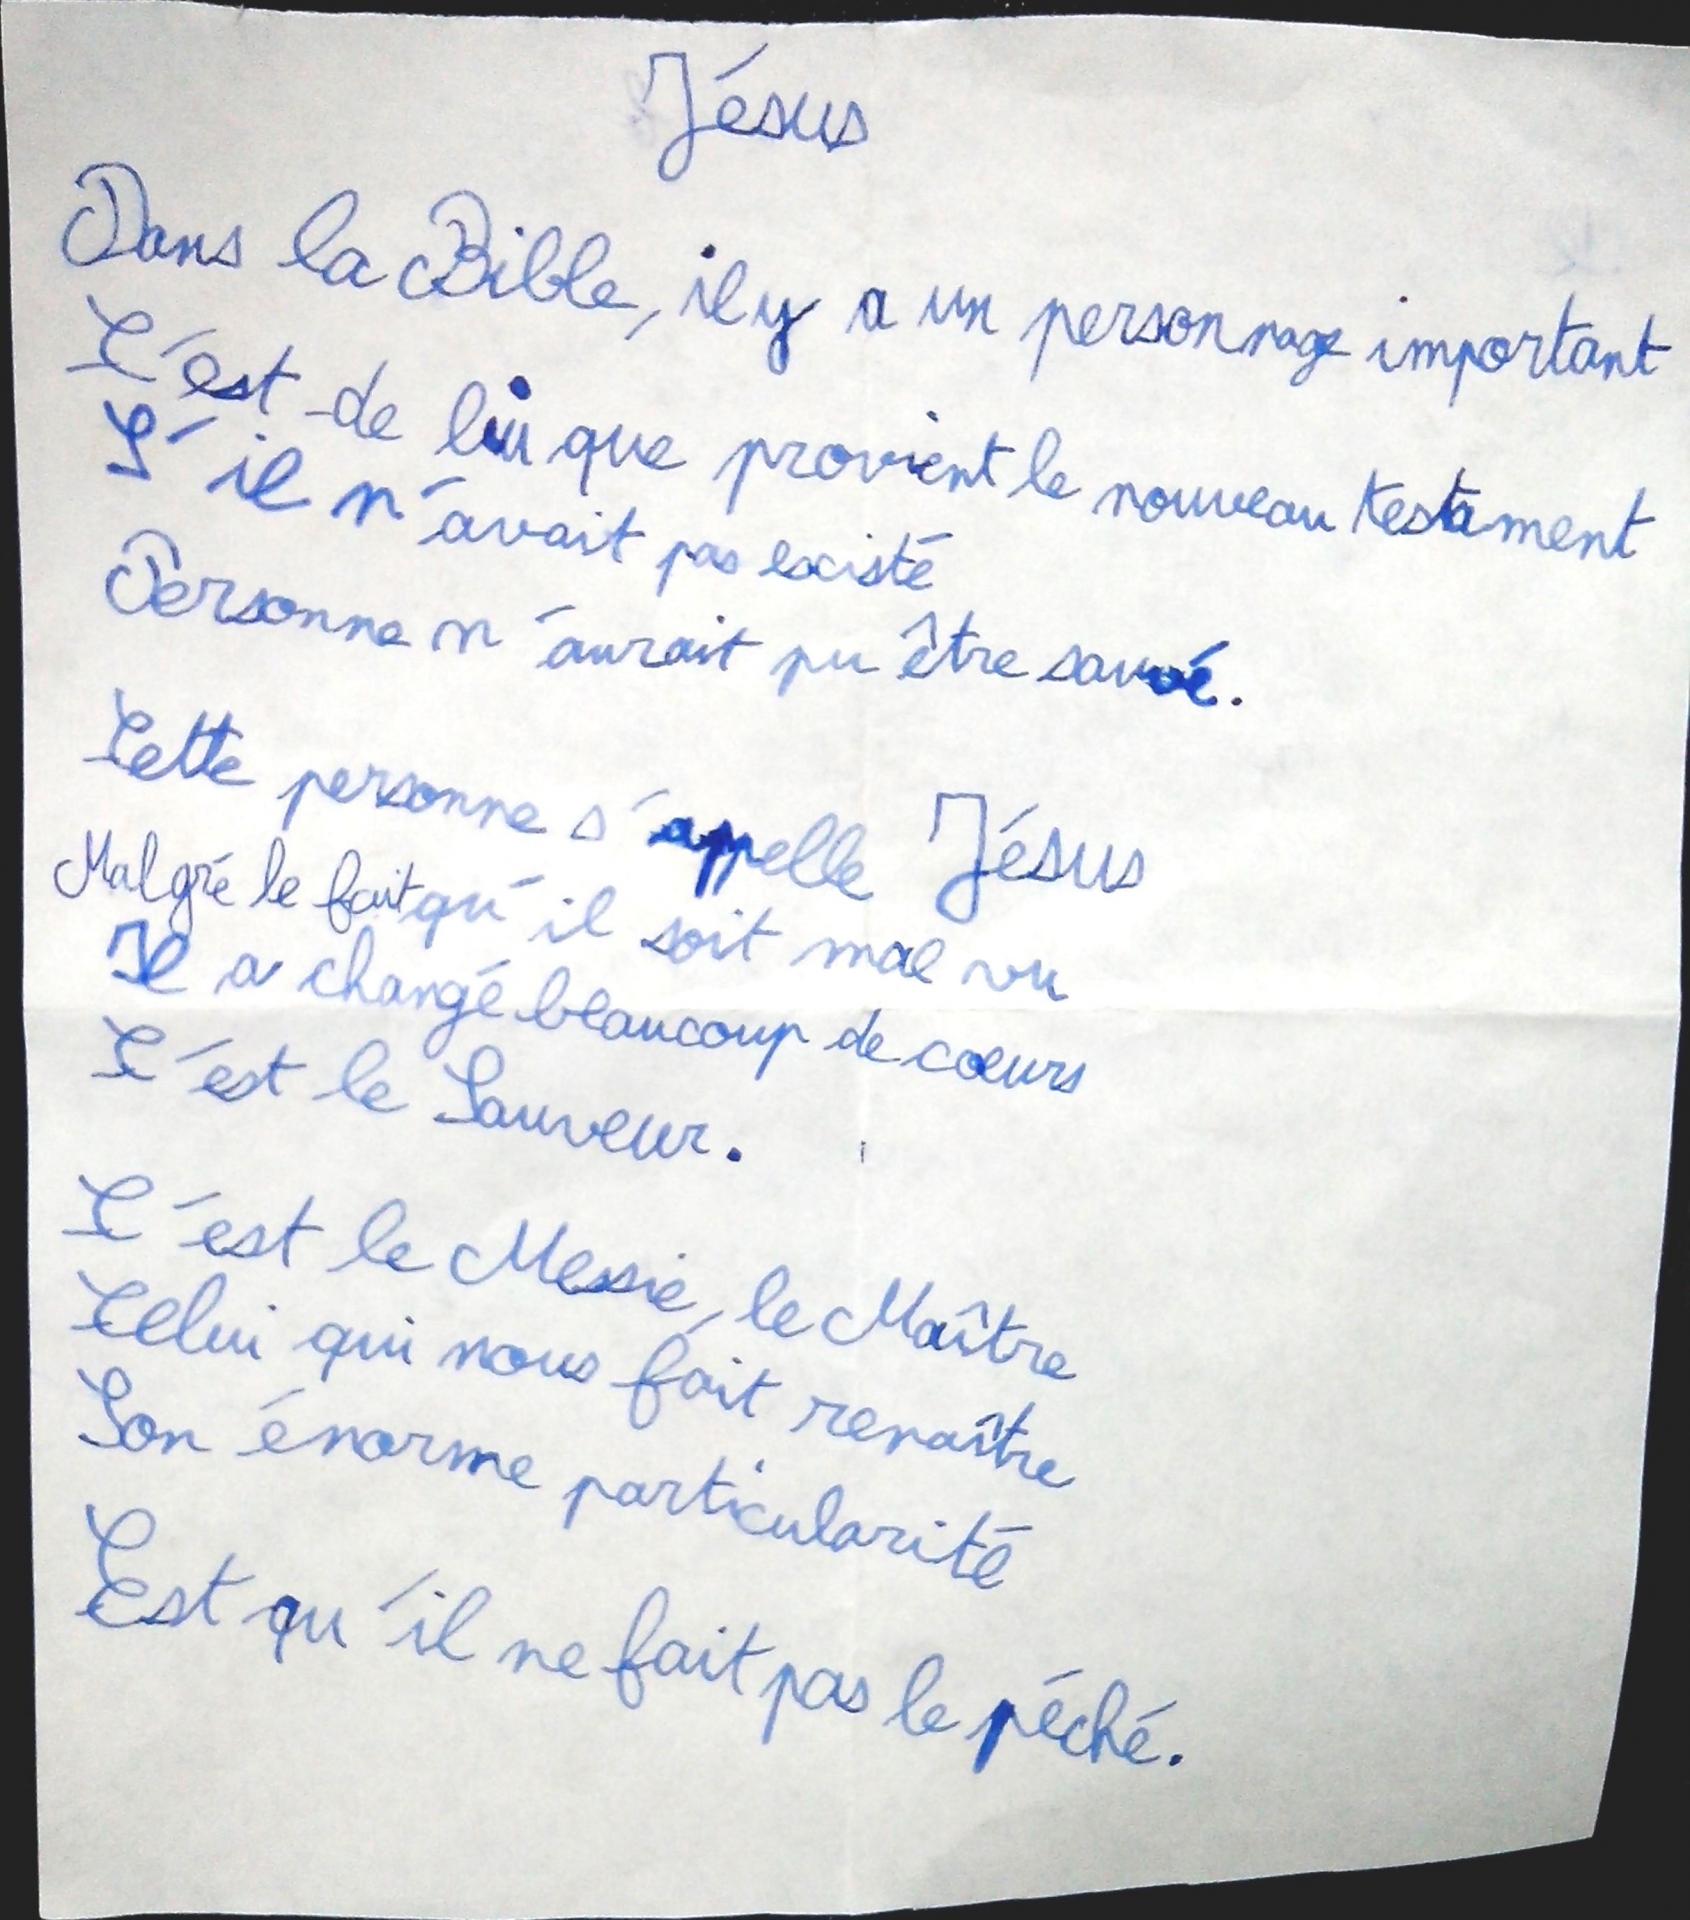 Jésus
Dans la Bible, il y a un personnage important
C'est de lui que provient le nouveau testament
S'il n'avait pas existé
Personne n'aurait pu être sauvé.
Cette personne s'appelle Jésus
Malgré le fait qu'il soit mal vu
Il a changé beaucoup de cœurs
C'est le Sauveur.
C'est le Messie, le Maître
Celui qui nous fait renaître
Son énorme particularité
Est qu'il ne fait pas le péché.